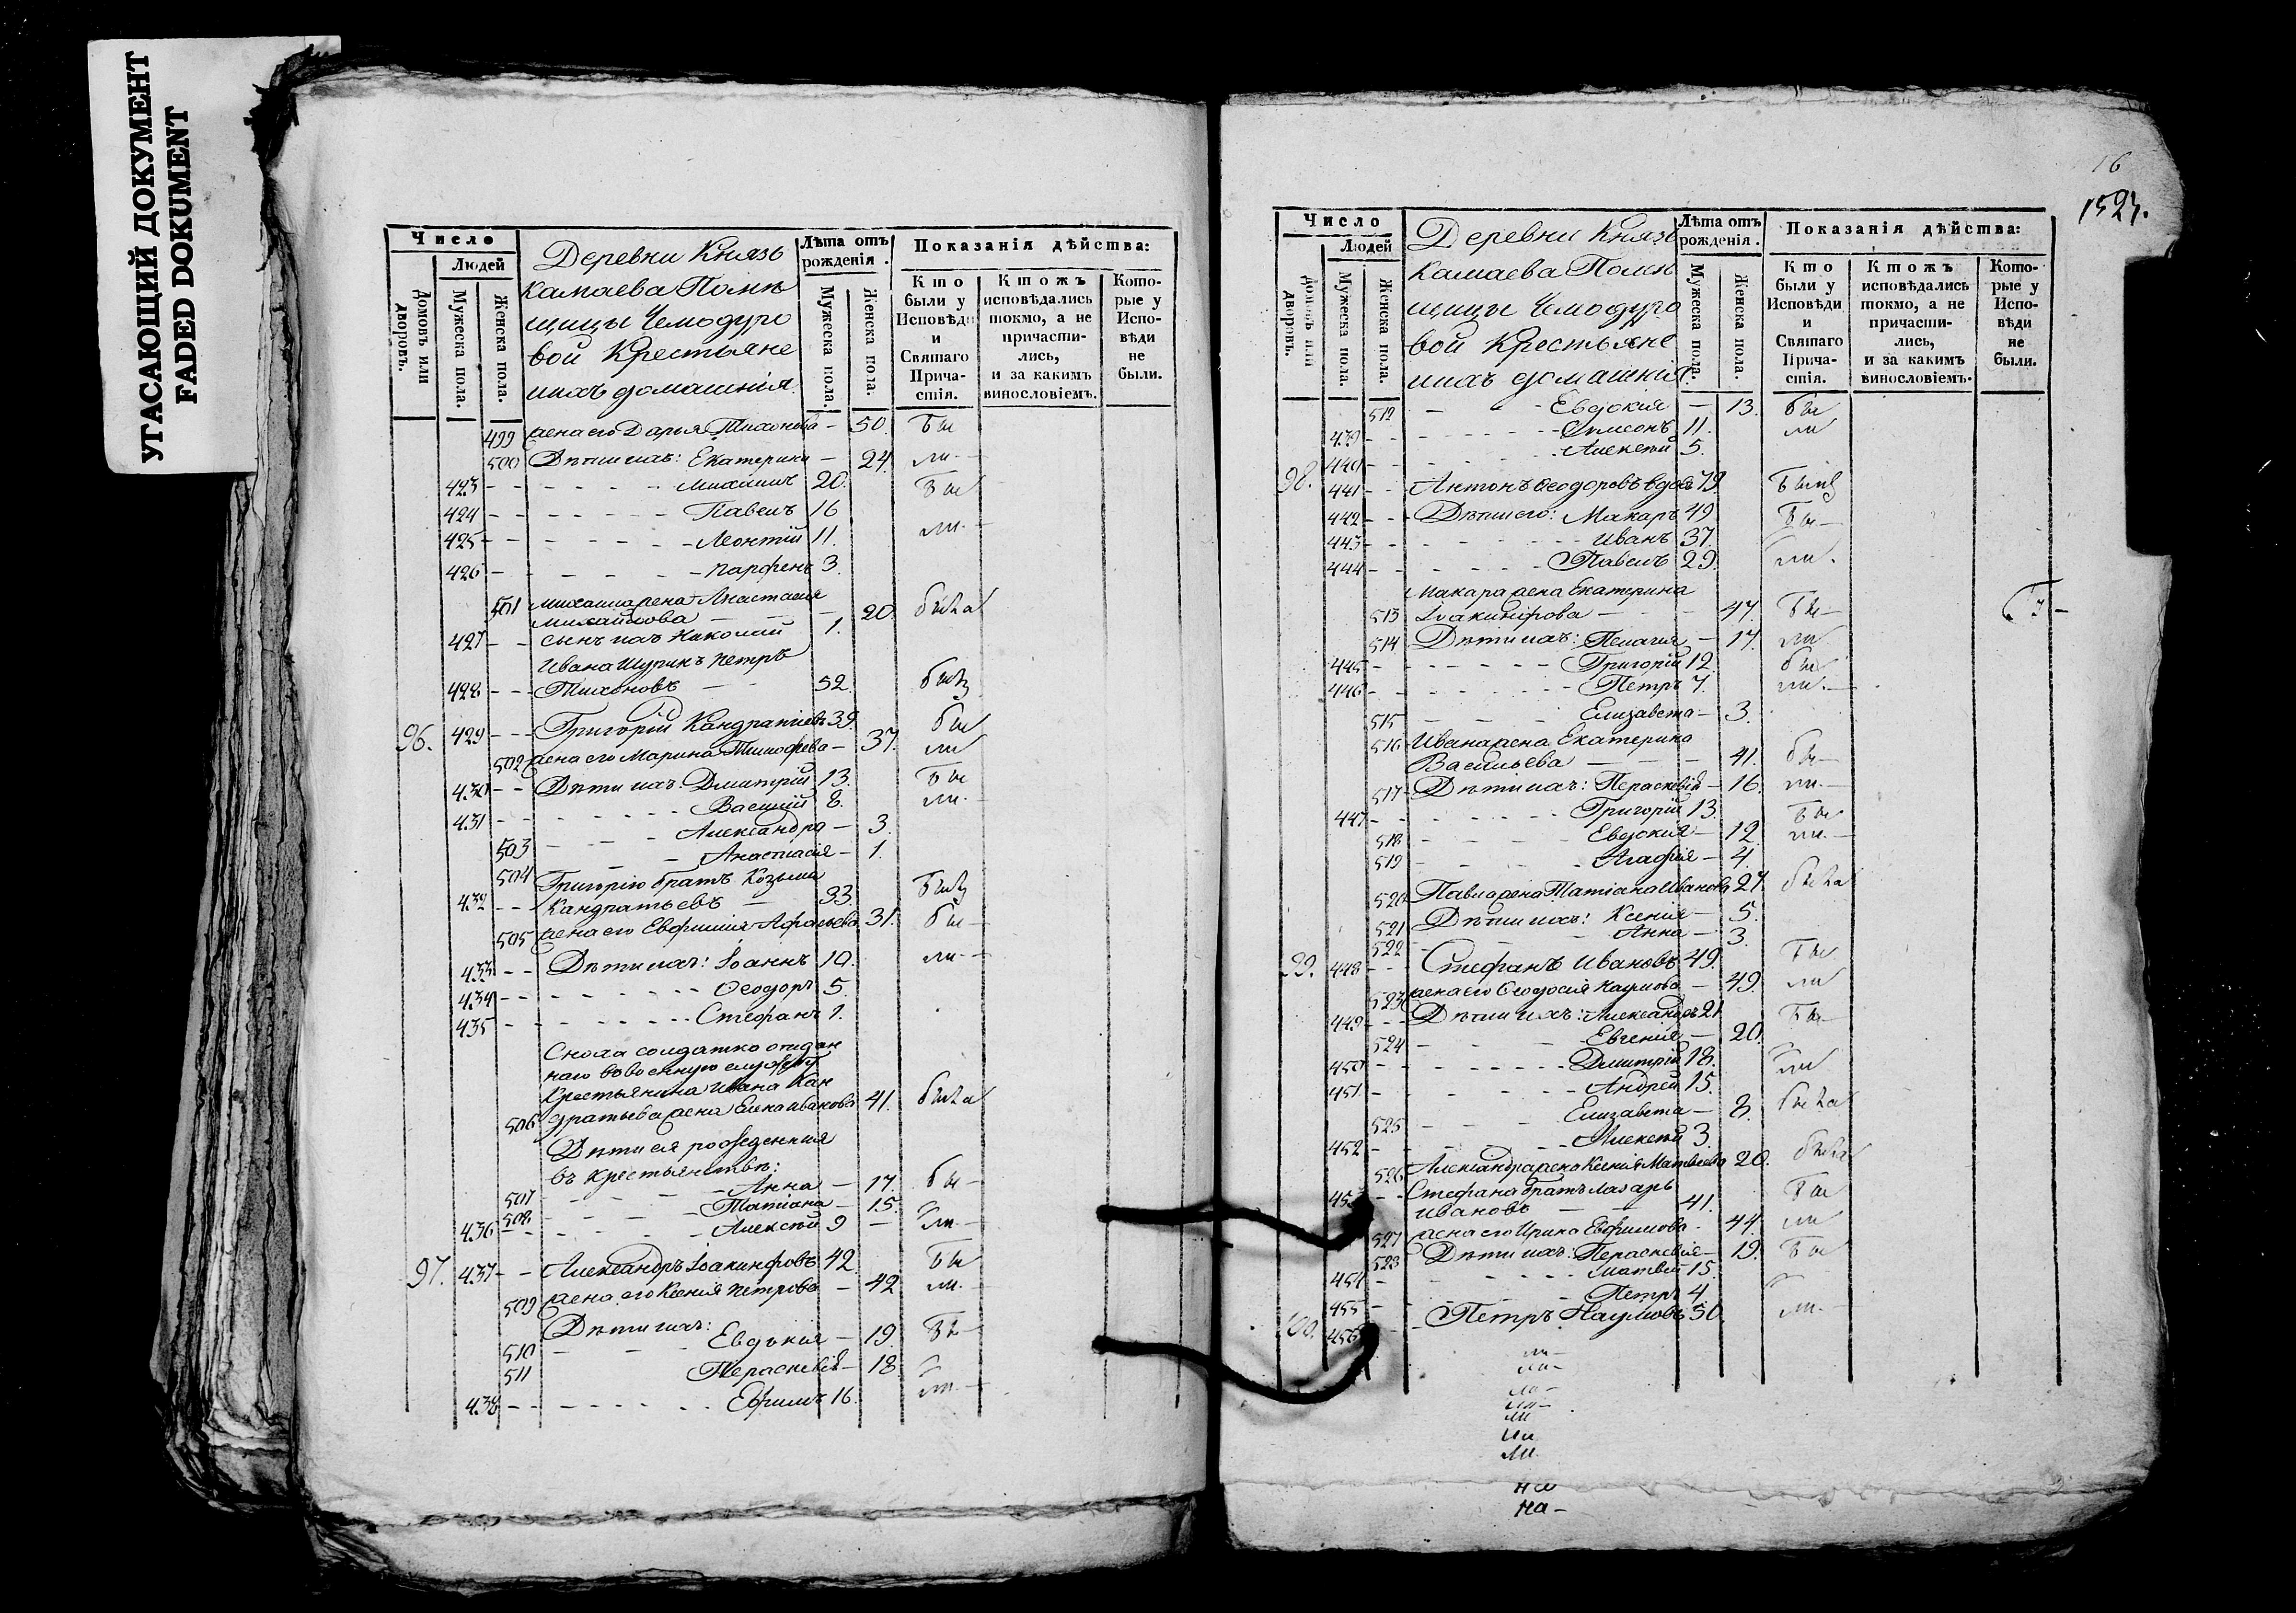 УГАСАЮЩИЙ ДОКУМЕНТ
FADED DOKUMENT
Число
Людей
Домовъ или дворовъ.
Мужеска пола.
Женска пола.
Деревни Князь
Камаева Помѣ
щицы Чемодуро
вой Крестьяне
ихъ домашнія
Лѣта отъ рожденія.
Мужеска пола.
Женска пола.
Показанія дѣйства:
Кто были у Исповѣди и Святаго Прича-стія.
Ктожъ исповѣдались токмо, а не причасти-лись, и за какимъ винословіемъ.
Кото-рые у Испо-вѣди не были.
499 жена его Дарья Тихонова - 50. бы
500 Дѣти ихъ: Екатерина - 24 ли -
423 - - Михаилъ 20. бы
424 - - Павелъ 16
425 - - Леонтій 11. ли. -
426 - - Парфенъ 3.
501 Михаила жена Анастасія
Михайлова - - 20. была
427 - - сынъ ихъ Николай 1.
Ивана Шуринъ Петръ
428 - - Тихоновъ - 52. былъ
96. 429 - - Григорій Кандратіевъ 39. бы
502 жена его Марина Тимофеева - 37. ли
430 - - Дѣти ихъ: Дмитрій 13. бы
431 - - Василій 8. ли. -
503 - - Александра - 3.
504 - - Анастасія - 1.
Григорію братъ Козьма
432 - - Кандратьевъ - 33. былъ
505 жена его Евфимія 31. бы -
433 - - Дѣти ихъ: Іоаннъ 10. ли. -
434 - - Ѳеодоръ 5.
435 - - Стефанъ 1.
Сноха солдатка отдан
наго въ военную службу
Крестьянина Ивана Кан
506 дратьева жена Елена Иванова 41. была
Дѣти ея рожденныя
въ крестьянствѣ:
507 - - Анна - 17. бы -
508 - - Татіана - 15.
436 - - Алексѣй 9 - ли. -
97. 437 - - Александръ Іоакинфовъ 42. бы
509 жена его Ксенія Петрова - 42 ли. -
Дѣти ихъ:
510 - - Евдокія - 19. бы -
511 Параскевія - 18.
438 - - Ефимъ 16. ли. -
16
1523.
Число
Людей
Домовъ или дворовъ.
Мужеска пола.
Женска пола.
Деревни Князь
Камаева Помѣ
щицы Чемодуро
вой Крестьяне
ихъ домашнія.
Лѣта отъ рожденія.
Мужеска пола.
Женска пола.
Показанія дѣйства:
Кто были у Исповѣди и Святаго Прича-стія.
Ктожъ исповѣдались токмо, а не причасти-лись, и за какимъ винословіемъ.
Кото-рые у Испо-вѣди не были.
512 - - Евдокія - 13. бы
439 - - Симеонъ 11. ли
440 - - Алексѣй 5.
98. 441 - - Антонъ Ѳеодоровъ вдовъ 79. былъ
442 - - Дѣти его: Макаръ 49 бы -
443 - - Иванъ 37.
444 - - Павелъ 29. ли.
Макара жена Екатерина
513 Іоакинфова - - 47. бы -
514 Дѣти ихъ: Пелагія - 17. ли
445 - - Григорій 12 бы
446 - - Петръ 7. ли. -
515 - - Елизавета - 3.
516 Ивана жена Екатерина
Васильева - - 41. бы -
517 Дѣти ихъ: Параскевія - 16. ли. -
447 - - Григорій 13. бы
518 - - Евдокія - 12. ли. -
519 - - Агафія - 4.
520 Павла жена Татіана Иванова 27. была
521 Дѣти ихъ: Ксенія - 5.
522 - - Анна - 3.
99. 448 - - Стефанъ Ивановъ 49. бы
523 жена его Ѳеодосія Наумова - 49. ли
449 - - Дѣти ихъ: Александръ 21 бы -
524 - - Евгенія - 20.
450 - - Дмитрій 18. ли
451 - - Андрей 15.
525 - - Елизавета - 8. была
452 - - Алексѣй 3.
526 Александра жена Ксенія Матвѣева 20. была
453 - - Стефана братъ Лазарь
Ивановъ - - 41. бы
527 жена его Ирина Евфимова - 44. ли
528 Дѣти ихъ: Параскевія - 19. бы
454 - - Матвѣй 15.
455 - - Петръ 4.
100. 456 - - Петръ Наумовъ 50. ли. -
ли -
ли -
ли -
ли -
ли
ли
ли.
на
на -